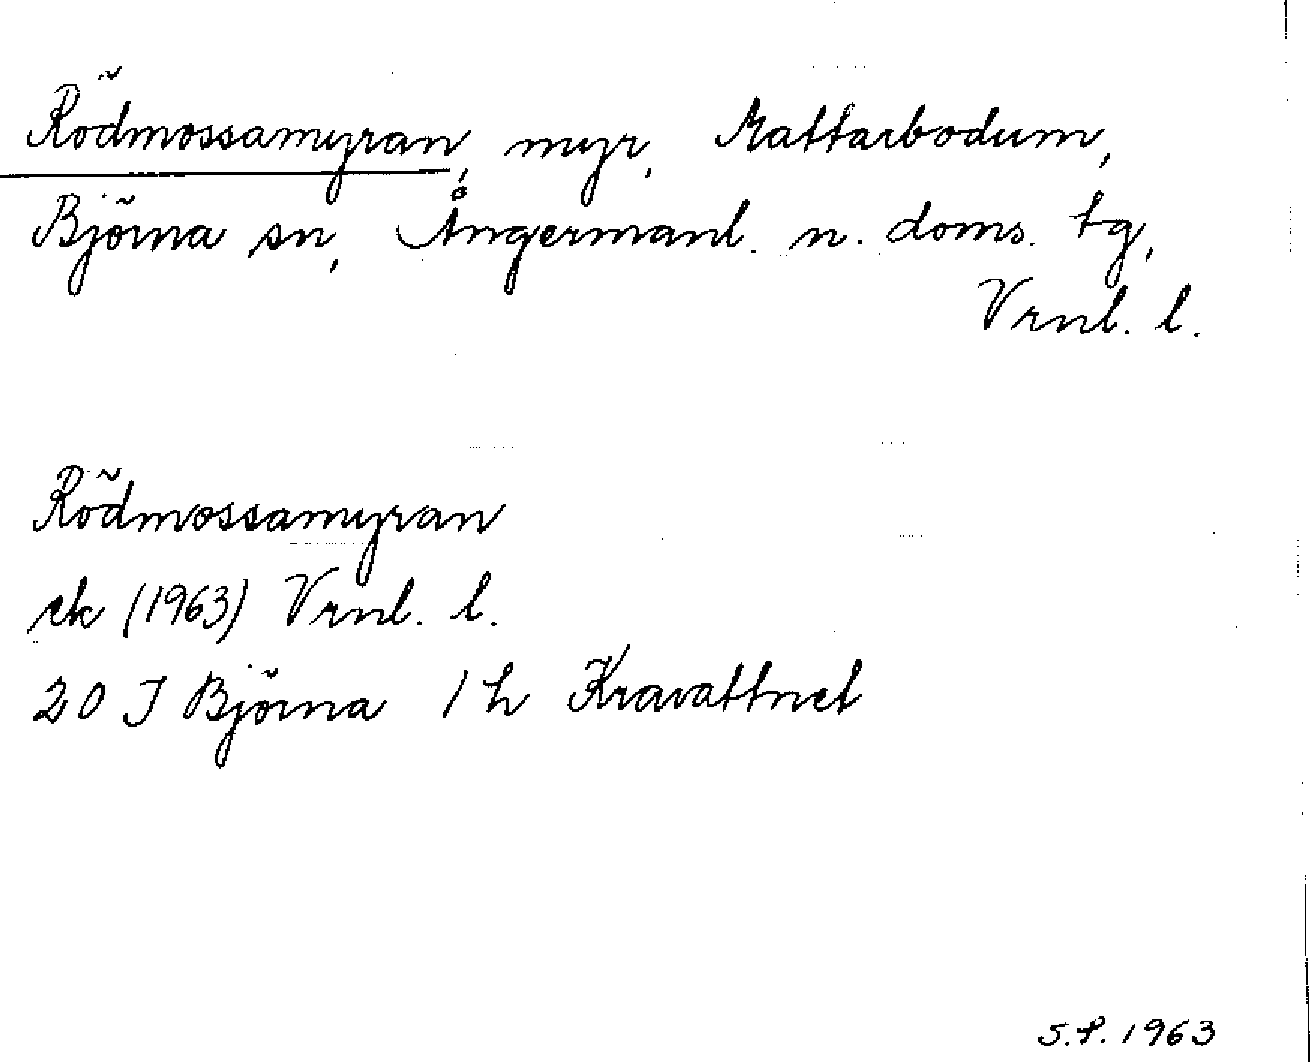 Rödmossamyran, myr, Mattarbodum,
Björna sn, Ångermanl. n. doms. tg,
Vrnl. l.
Rödmossamyran
ek (1963) Vrnl. l.
20 J Björna 1 h Kravattnet
S.P. 1963